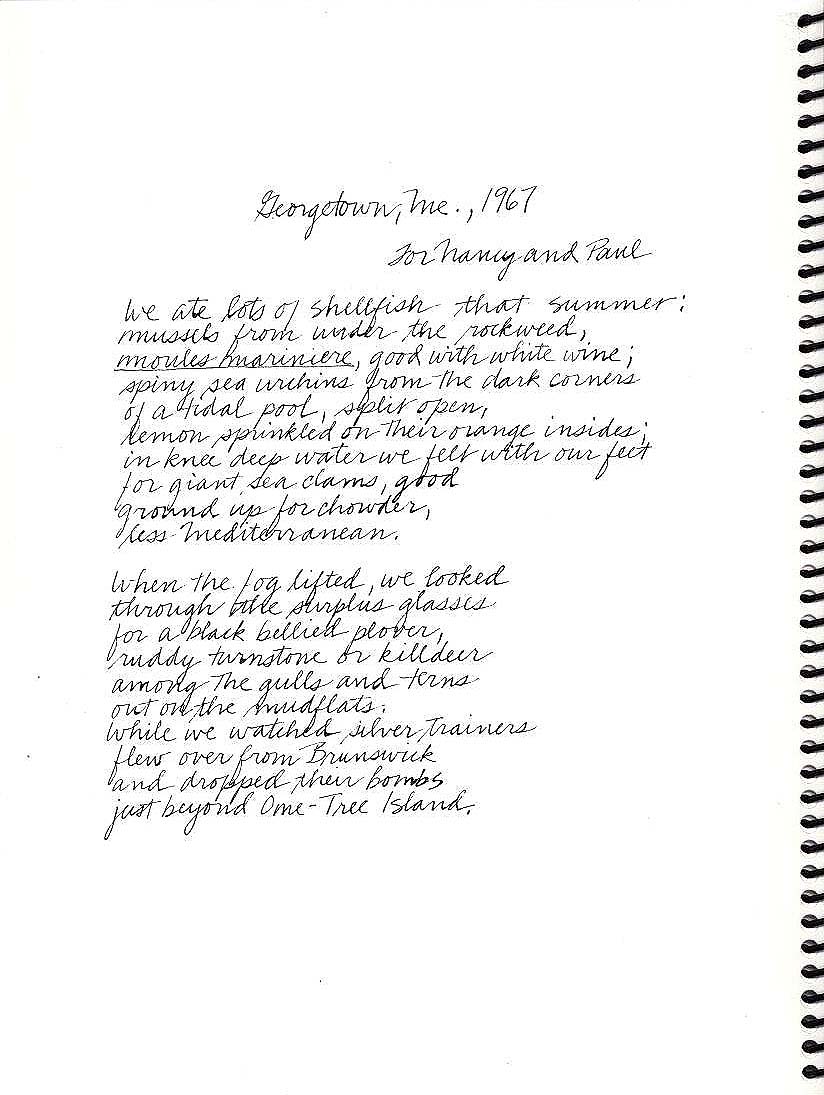 Georgetown, Me., 1967
For Nancy and Paul
We ate lots of shellfish that summer:
mussels from under the rockweed,
moules mariniere, good with white wine;
spiny sea urchins from the dark corners
of a tidal pool, split open,
lemon sprinkled on their orange insides;
in knee deep water we felt with our feet
for giant sea clams, good
ground up for chowder,
less Mediterranean.
When the fog lifted, we looked
through the surplus glasses
for a black bellied plover,
ruddy turnstone or killdeer
among the gulls and terns
out on the mudflats.
While we watched silver trainers
flew over from Brunswick
and dropped their bombs
just beyond One-Tree Island.